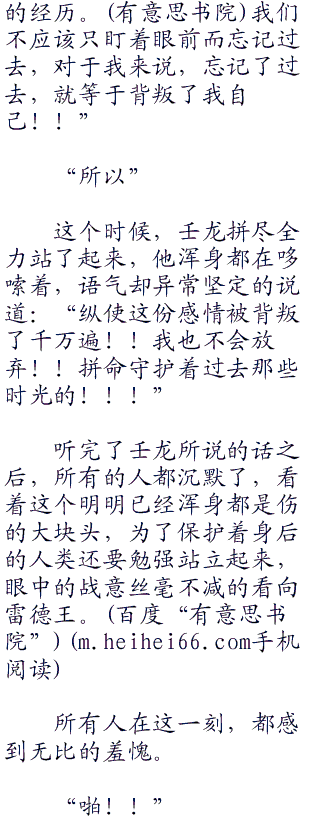 的经历。(有意思书院)我们
不应该只盯着眼前而忘记过
去，对于我来说，忘记了过
去，就等于背叛了我自
己！！”
“所以”
这个时候，壬龙拼尽全
力站了起来，他浑身都在哆
嗦着，语气却异常坚定的说
道：“纵使这份感情被背叛
了千万遍！！我也不会放
弃！！拼命守护着过去那些
时光的！！！”
听完了壬龙所说的话之
后，所有的人都沉默了，看
着这个明明已经浑身都是伤
的大块头，为了保护着身后
的人类还要勉强站立起来，
眼中的战意丝毫不减的看向
雷德王。(百度“有意思书
院”)(m.heihei66.com手机
阅读)
所有人在这一刻，都感
到无比的羞愧。
“啪！！”